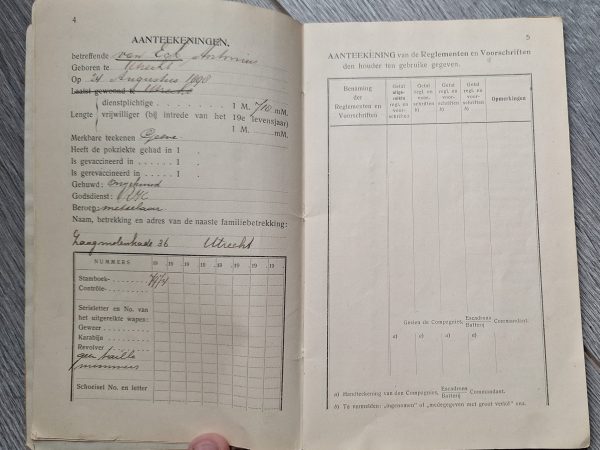 4
AANTEEKENINGEN.
betreffende van Eck Antonius
Geboren te Utrecht
Op 24 Augustus 1898
Laatst gewoond te Utrecht
dienstplichtige 1 M. 710 mM.
Lengte
vrijwilliger (bij intrede van het 19e levensjaar)
1 M. mM.
Merkbare teekenen Geene
Heeft de pokziekte gehad in 1 .
Is gevaccineerd in 1 .
Is gerevaccineerd in 1 .
Gehuwd: ongehuwd
Godsdienst: R.K.
Beroep: metselaar
Naam, betrekking en adres van de naaste familiebetrekking:
Zaagmolenkade 36 Utrecht
NUMMERS 19 19 19 19 19 19 19
Stamboek-
Contrôle-
Serieletter en No. van
het uitgereikte wapen:
Geweer
Karabijn
Revolver
geen taille
nummers
Schoeisel No. en letter
5
AANTEEKENING van de Reglementen en Voorschriften
den houder ten gebruike gegeven.
Benaming
der
Reglementen en
Voorschriften
Getal
uitge-
reikte
regl. en
voor-
schriften
a)
Getal
regl. en
voor-
schriften
b)
Getal
regl. en
voor-
schriften
b)
Getal
regl. en
voor-
schriften
b)
Opmerkingen
Gezien de Compagnies, Escadrons Batterij Commandant.
a) a) a) a)
a) Handteekening van den Compagnies, Escadrons Batterij Commandant.
b) Te vermelden: „ingenomen" of „medegegeven met groot verlof" enz.